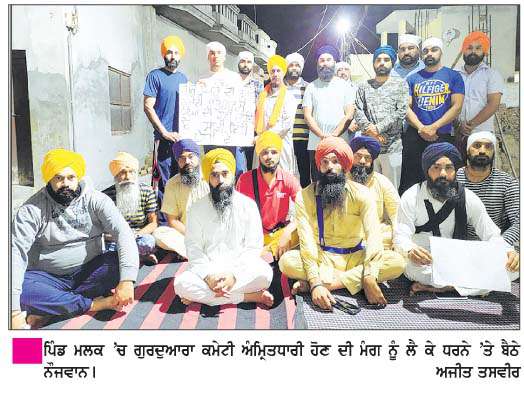 HILFIGER
DENIM
ਪਿੰਡ ਮਲਕ ’ਚ ਗੁਰਦੁਆਰਾ ਕਮੇਟੀ ਅੰਮ੍ਰਿਤਧਾਰੀ ਹੋਣ ਦੀ ਮੰਗ ਨੂੰ ਲੈ ਕੇ ਧਰਨੇ ’ਤੇ ਬੈਠੇ
ਨੌਜਵਾਨ। ਅਜੀਤ ਤਸਵੀਰ